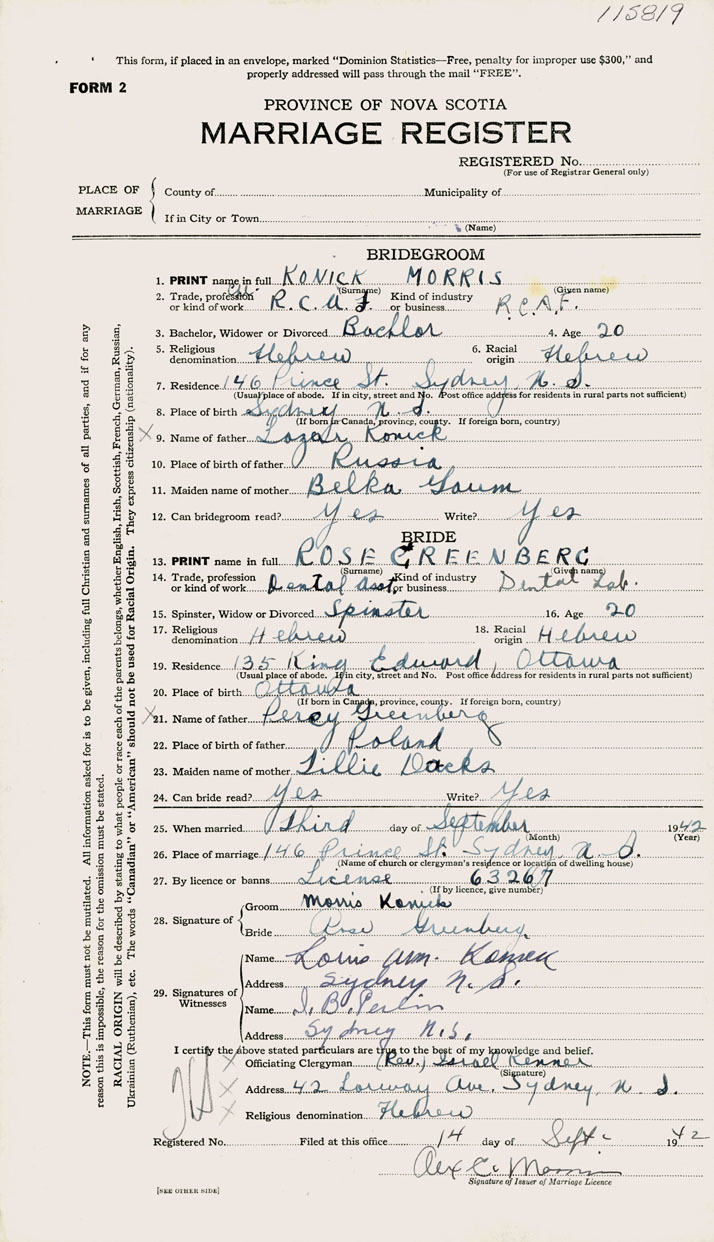 115819
This form, if placed in an envelope, marked "Dominion Statistics—Free, penalty for improper use $300," and
properly addressed will pass through the mail "FREE".
FORM 2
PROVINCE OF NOVA SCOTIA
MARRIAGE REGISTER
REGISTERED No.
(For use of Registrar General only)
PLACE OF MARRIAGE
County of Municipality of
If in City or Town
(Name)
NOTE.—This form must not be mutilated. All information asked for is to be given, including full Christian and surnames of all parties, and if for any
reason this is impossible, the reason for the omission must be stated.
RACIAL ORIGIN will be described by stating to what people or race each of the parents belongs, whether English, Irish, Scottish, French, German, Russian,
Ukrainian (Ruthenian), etc. The words "Canadian" or "American" should not be used for Racial Origin. They express citizenship (nationality).
BRIDEGROOM
1. PRINT name in full KONICK MORRIS
(Surname) (Given name)
2. Trade, profession or kind of work R.C.A.F. Kind of industry or business R.C.A.F.
3. Bachelor, Widower or Divorced Bachlor 4. Age 20
5. Religious denomination Hebrew 6. Racial origin Hebrew
7. Residence 146 Prince St. Sydney, N. S.
(Usual place of abode. If in city, street and No. Post office address for residents in rural parts not sufficient)
8. Place of birth Sydney N. S.
(If born in Canada, province, county. If foreign born, country)
X 9. Name of father Lazar Konick
10. Place of birth of father Russia
11. Maiden name of mother Belka Gaum
12. Can bridegroom read? Yes Write? Yes
BRIDE
13. PRINT name in full ROSE GREENBERG
(Surname) (Given name)
14. Trade, profession or kind of work Dental Asst. Kind of industry or business Dental Lab.
15. Spinster, Widow or Divorced Spinster 16. Age 20
17. Religious denomination Hebrew 18. Racial origin Hebrew
19. Residence 135 King Edward, Ottawa
(Usual place of abode. If in city, street and No. Post office address for residents in rural parts not sufficient)
20. Place of birth Ottawa
(If born in Canada, province, county. If foreign born, country)
X 21. Name of father Percy Greenberg
22. Place of birth of father Poland
23. Maiden name of mother Lillie Dacks
24. Can bride read? Yes Write? Yes
25. When married Third day of September 1942
(Month) (Year)
26. Place of marriage 146 Prince St. Sydney, N. S.
(Name of church or clergyman's residence or location of dwelling house)
27. By licence or banns License 63267
(If by licence, give number)
28. Signature of Groom Morris Konick
Bride Rose Greenberg
29. Signatures of Witnesses
Name Louis Wm. Konick
Address Sydney N. S.
Name I. B. Perlin
Address Sydney N.S.
I certify the above stated particulars are true to the best of my knowledge and belief.
X Officiating Clergyman (Rev.) Israel Kenner
(Signature)
X Address 42 Lorway Ave. Sydney, N. S.
X Religious denomination Hebrew
Registered No. Filed at this office 14 day of Sept. 1942
Alex C. Morrison
Signature of Issuer of Marriage Licence
[SEE OTHER SIDE]